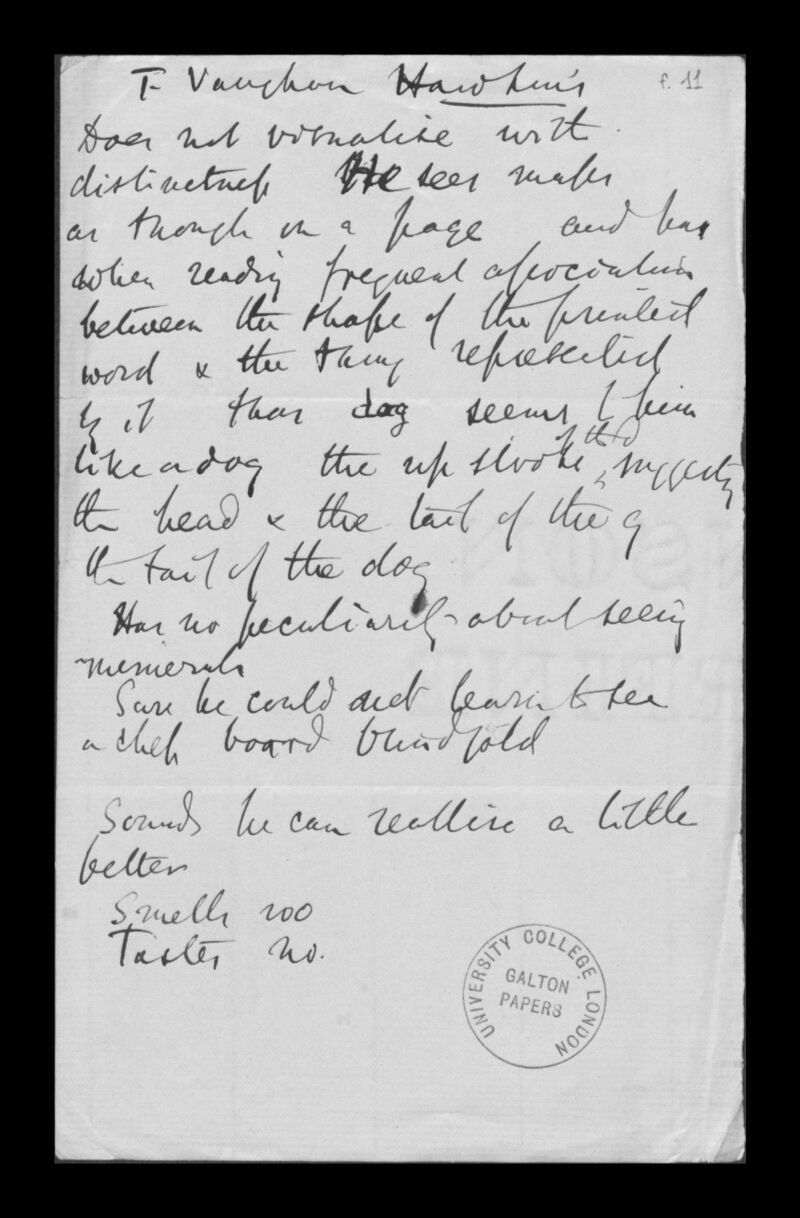 T. Vaughan Hawkins
f. 11
Does not visualise with
distinctness He sees maps
as though on a page and has
when reading frequent associations
between the shape of the printed
word & the thing represented
by it thus dog seems to him
like a dog the up stroke of the d suggesting
the head & the tail of the g
the tail of the dog
Has no peculiarity about seeing
numerals
Sure he could not learn to see
a chess board blindfold
Sounds he can reallise a little
better
Smells no
Tastes no.
UNIVERSITY COLLEGE LONDON
GALTON
PAPERS